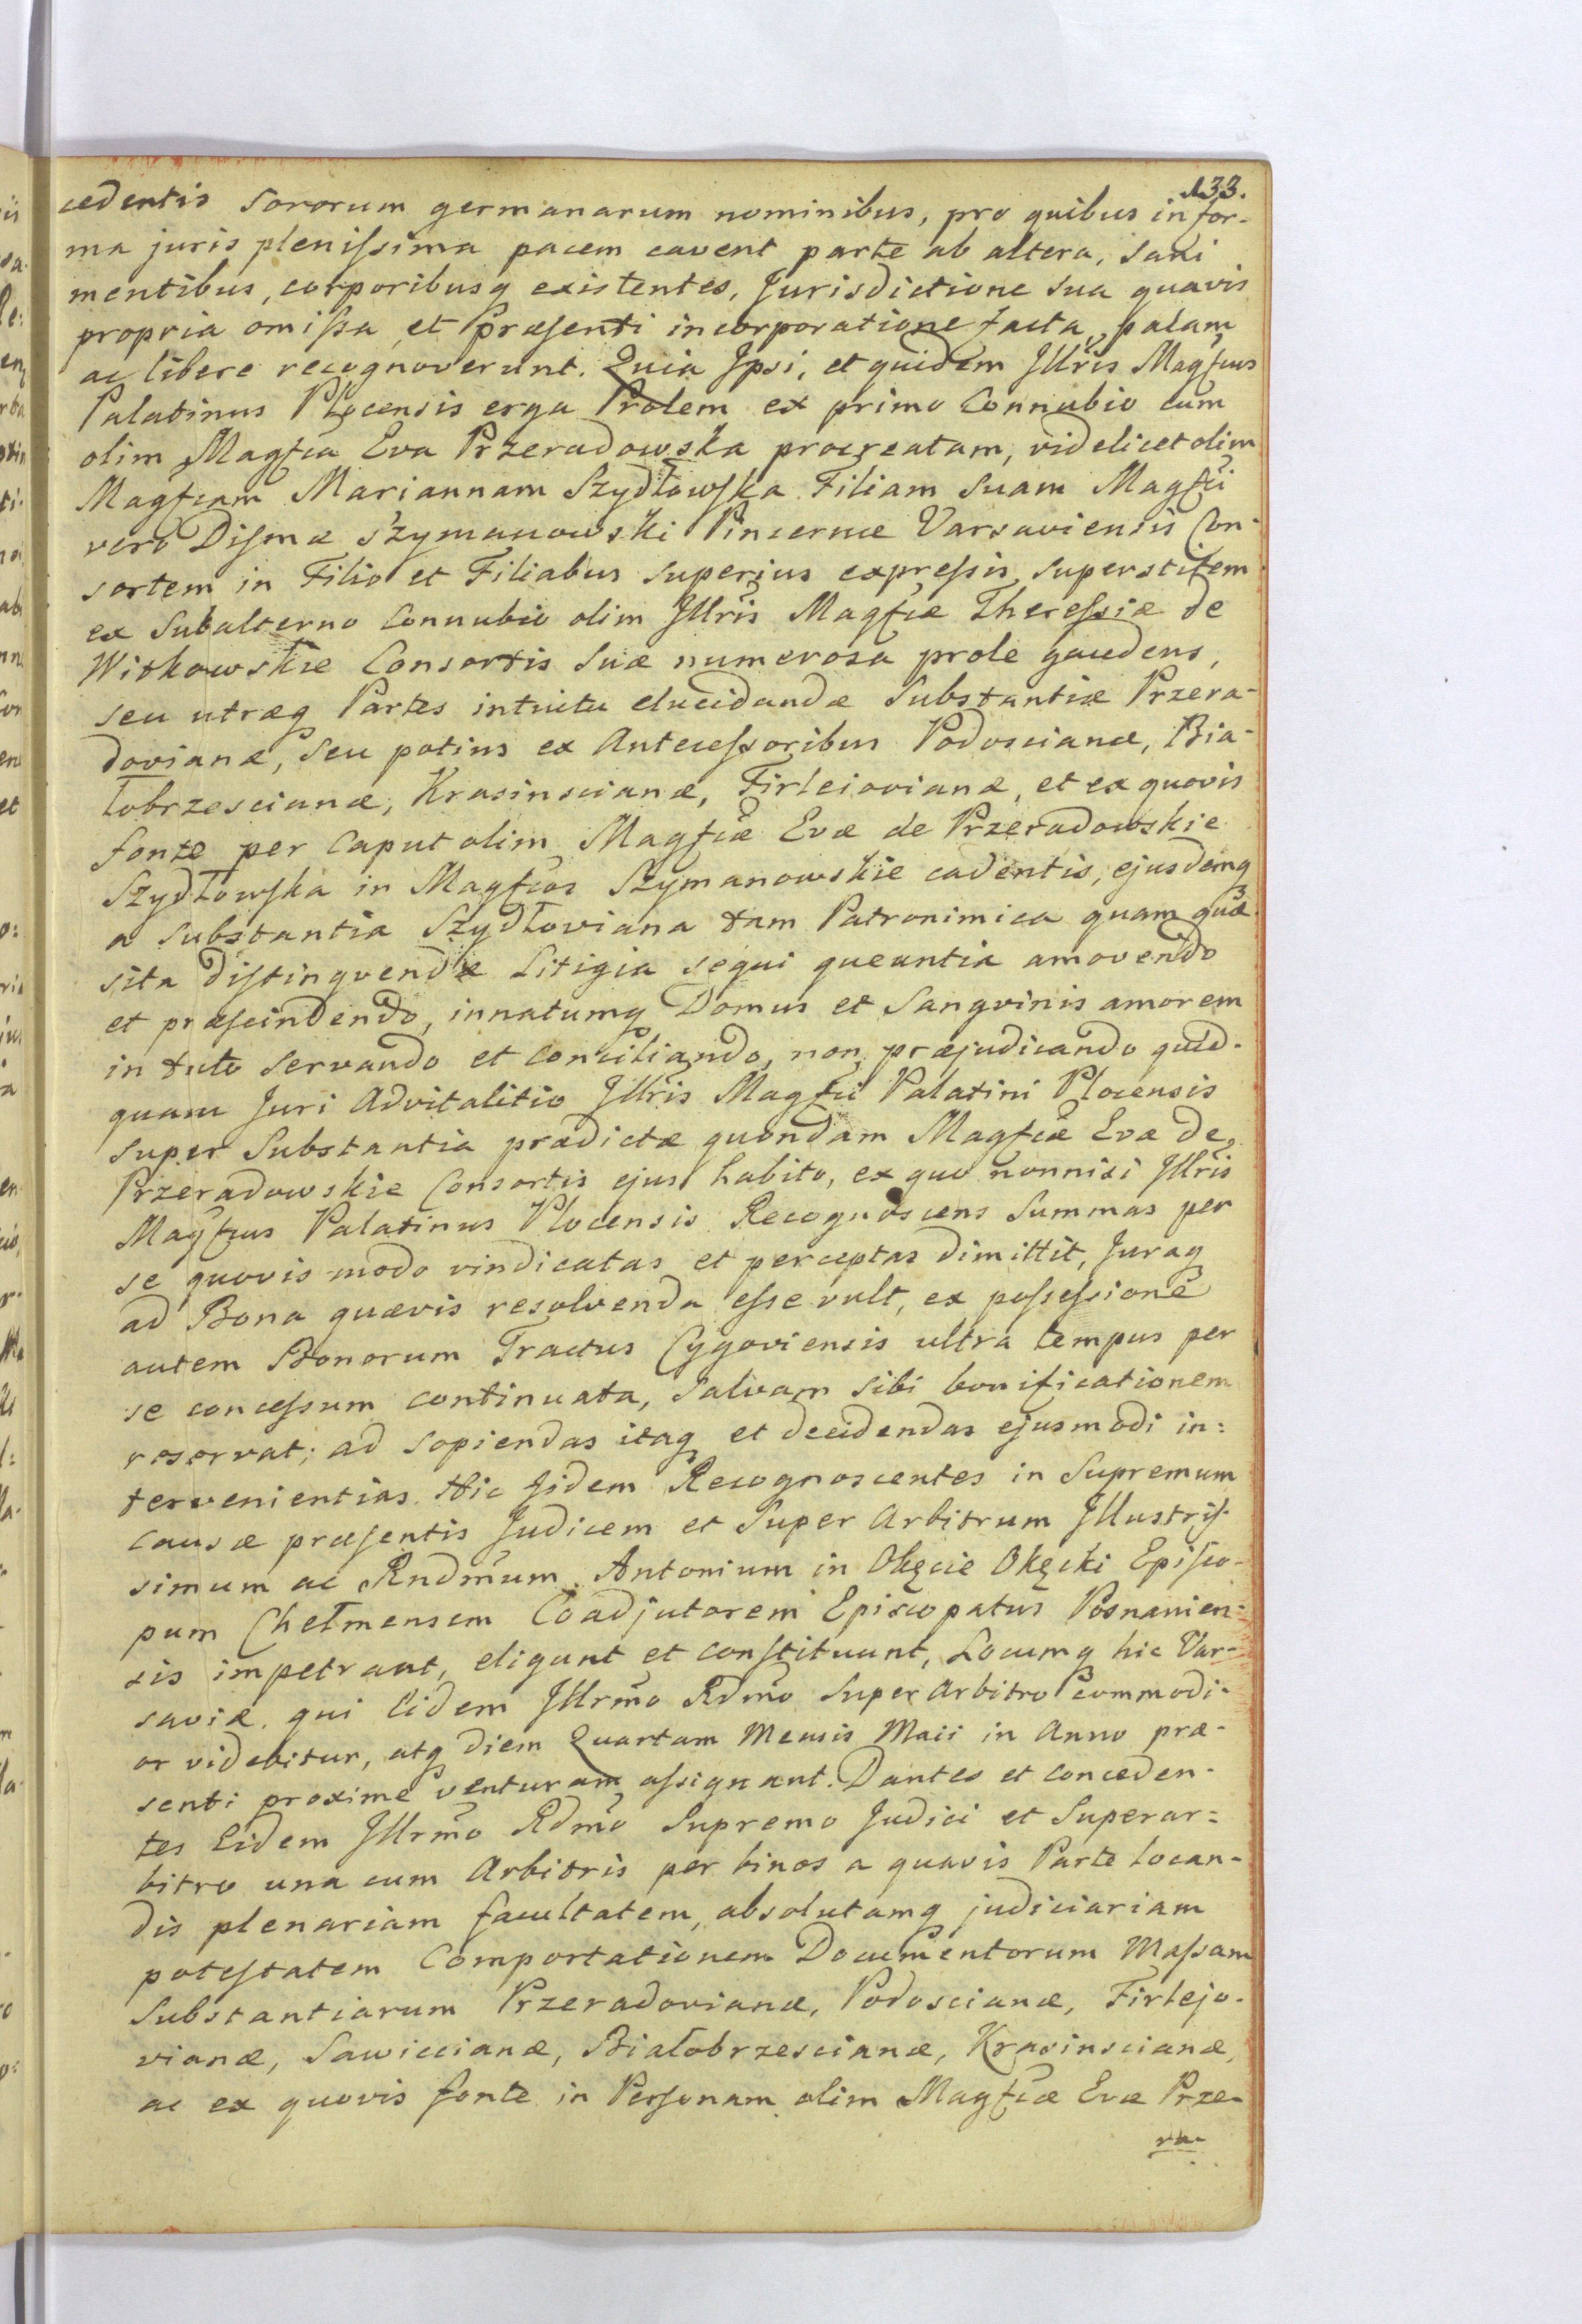 133.
cedentis Sororum germanarum nominibus, pro quibus in for-
ma juris plenissima pacem cavent parte ab altera, Sani
mentibus, corporibusq existentes, Jurisdictione sua quavis
propria omissa, et Præsenti incorporatione facta, palam
ac libere recognoverunt. Quia Ipsi, et quidem Illris Magfcus
Palatinus Plocensis erga Prolem ex primo Connubio cum
olim Magfca Eva Przeradowska procreatam, videlicet olim
Magfcam Mariannam Szydłowska Filiam Suam Magfci
vero Dismæ Szymanowski Pincernæ Varsaviensis Con-
sortem in Filio et Filiabus Superius expressis superstitem
ex Subalterno Connubio olim Illris Magfcæ Theressiæ de
Witkowskie Consortis Suæ numerosa prole gaudens,
seu utræq Partes intuitu elucidandæ Substantiæ Przera-
dovianæ, seu potius ex Antecessoribus Podoscianæ, Bia-
łobrzescianæ, Krasinscianæ, Firleiovianæ, et ex quovis
fonte per Caput olim Magfcæ Evæ de Przeradowskie
Szydłowska in Magfcos Szymanowskie cadentis, ejusdemq
a Substantia Szydłoviana tam Patronimica quam quæ-
sita distingvendæ Litigia sequi queuntia amovendo
et præscindendo, innatumq Domus et Sangvinis amorem
in tuto servando et conciliando, non præjudicando quid-
quam Juri Advitalitio Illris Magfci Palatini Plocensis
super Substantia prædictæ quondam Magfcæ Evæ de
Przeradowskie Consortis ejus habito, ex quo nonnisi Illris
Magfcus Palatinus Plocensis Recognoscens Summas per
se quovis modo vindicatas et perceptas dimittit, Juraq
ad Bona quævis resolvenda esse vult, ex possessione
autem Bonorum Tractus Cygoviensis ultra tempus per
se concessum continuata, Salvam sibi bonificationem
reservat; ad sopiendas itaq et decidendas ejusmodi in:
tervenientias. Hic Iidem Recognoscentes in Supremum
causæ præsentis Judicem et Super Arbitrum Illustris-
simum ac Rndmum Antonium in Okęcie Okęcki Episco-
pum Chełmensem Coadjutorem Episcopatus Posnanien-
sis impetrant, eligunt et constituunt, Locumq hic Var-
saviæ, qui Eidem Illrmo Rdmo Super Arbitro commodi-
or videbitur, atq diem Quartam Mensis Maii in Anno præ-
senti proxime venturam assignant. Dantes et conceden-
tes Eidem Illrmo Rdmo Supremo Judici et Superar=
bitro una cum Arbitris per binos a quavis Parte locan-
dis plenariam facultatem, absolutamq judiciariam
potestatem Comportationem Documentorum Massam
Substantiarum Przeradovianæ, Podoscianæ, Firlejo-
vianæ, Sawiccianæ, Białobrzescianæ, Krasinscianæ,
ac ex quovis fonte in Personam olim Magfcæ Evæ Prze-
ra-